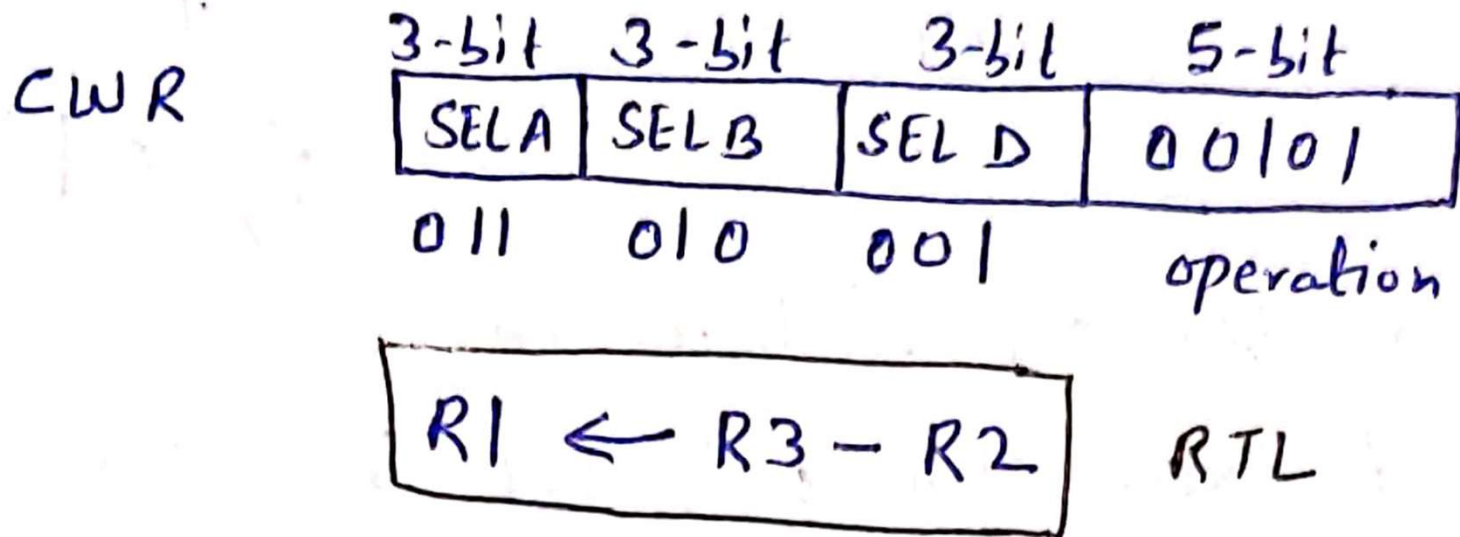 3-bit 3-bit 3-bit 5-bit
CWR SELA SELB SEL D 00101
011 010 001 operation
R1 ← R3 - R2 RTL